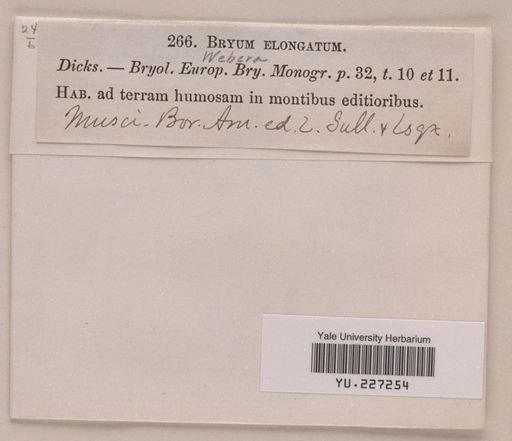 24
6
266. BRYUM ELONGATUM.
Webera
Dicks. — Bryol. Europ. Bry. Monogr. p. 32, t. 10 et 11.
HAB. ad terram humosam in montibus editioribus.
Musci. Bor. Am. ed. 2. Sull. & Lsqx.
Yale University Herbarium
YU.227254